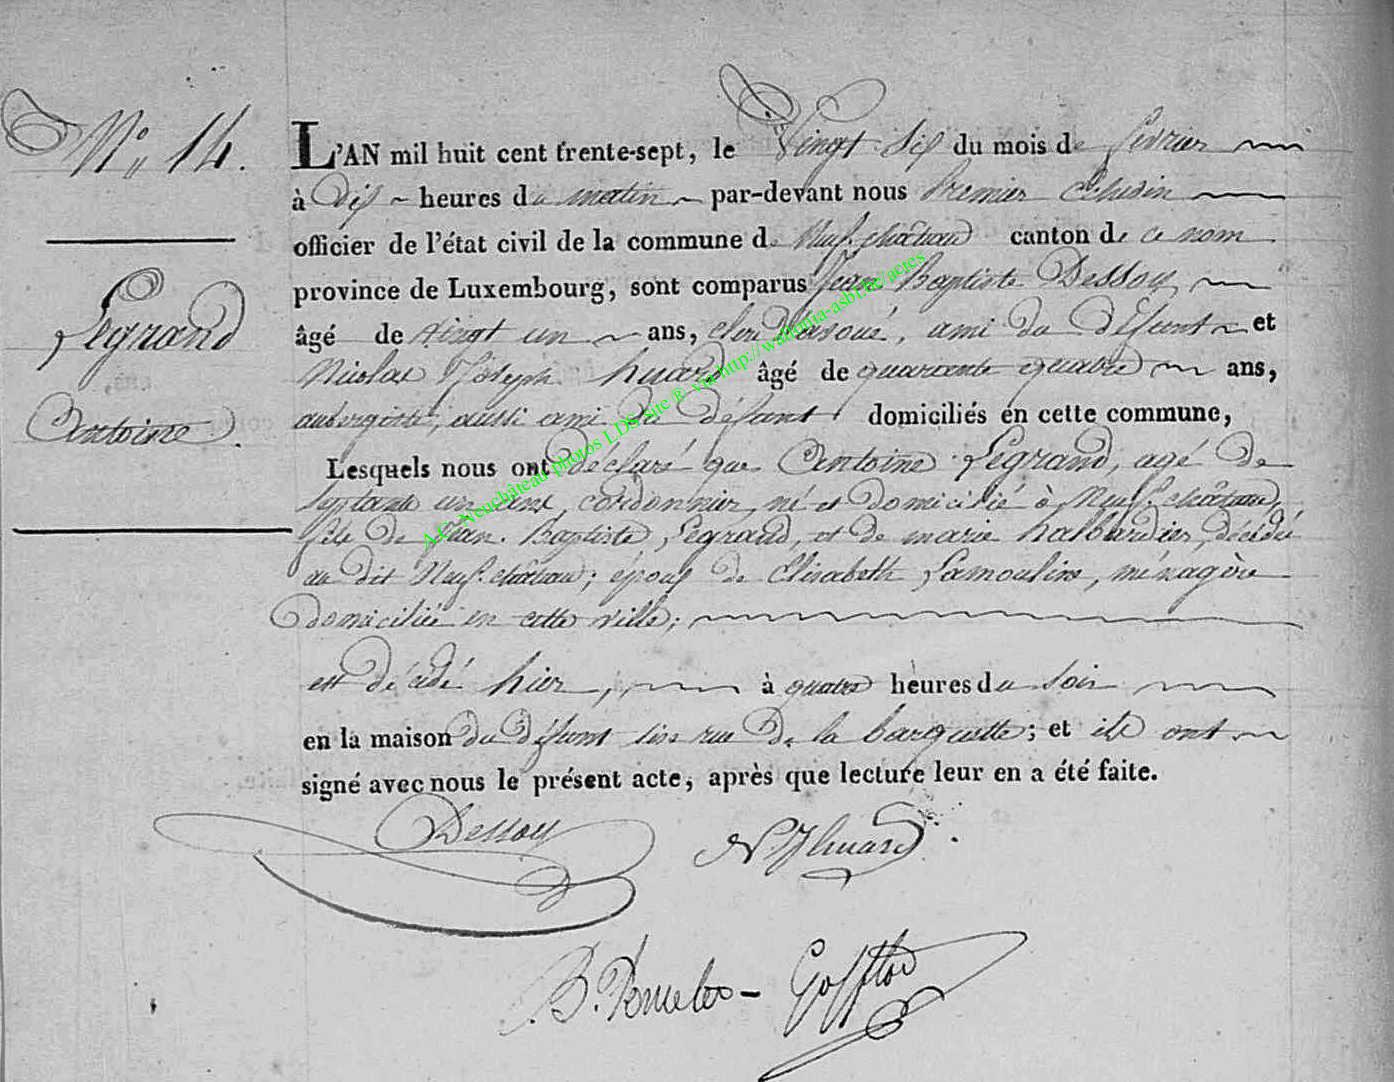 N° 14.
Legrand
Antoine.
L'AN mil huit cent trente-sept, le Vingt Six du mois de février
à dix heures du matin par-devant nous Premier Echevin
officier de l'état civil de la commune de Neufchâteau canton de ce nom
province de Luxembourg, sont comparus Jean Baptiste Dessoy
âgé de vingt un ans, clerc d'avoué, ami du défunt et
Nicolas Joseph huard âgé de quarante quatre ans,
aubergiste, aussi ami du défunt domiciliés en cette commune,
Lesquels nous ont déclaré que Antoine Legrand, agé de
septante un ans, cordonnier, né et domicilié à Neufchâteau,
fils de Jean Baptiste Legrand, et de marie halbardier, décédés
au dit Neufchâteau; époux de Elisabeth Lamouline, ménagère
domiciliée en cette ville;
est décédé hier, à quatre heures du soir
en la maison du défunt sise rue de la barquette; et ils ont
signé avec nous le présent acte, après que lecture leur en a été faite.
Dessoy NJhuard
A.C. Neuchâteau photos LDS site ® via http://wallonia-asbl.be/actes